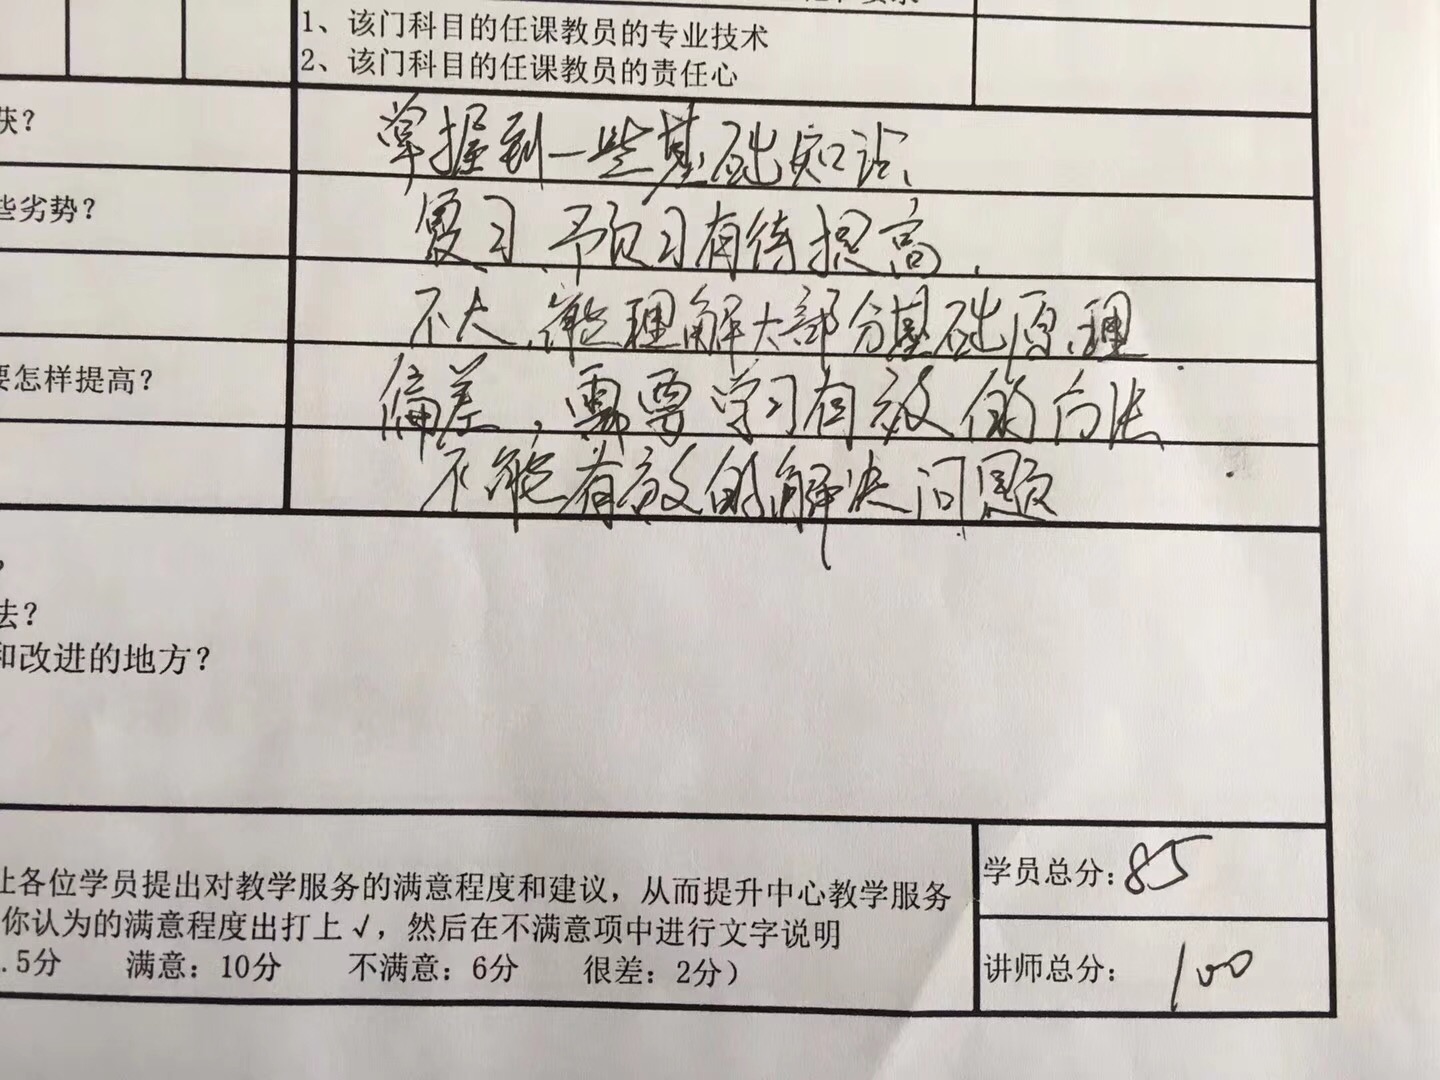 1、该门科目的任课教员的专业技术
2、该门科目的任课教员的责任心
获？
掌握到一些基础知识、
些劣势？
复习、预习有待提高、
不大、能理解大部分基础原理
要怎样提高？
偏差、需要学习有效的方法
不能有效的解决问题
？
法？
和改进的地方？
让各位学员提出对教学服务的满意程度和建议，从而提升中心教学服务
你认为的满意程度出打上√，然后在不满意项中进行文字说明
.5分 满意：10分 不满意：6分 很差：2分）
学员总分：85
讲师总分：100